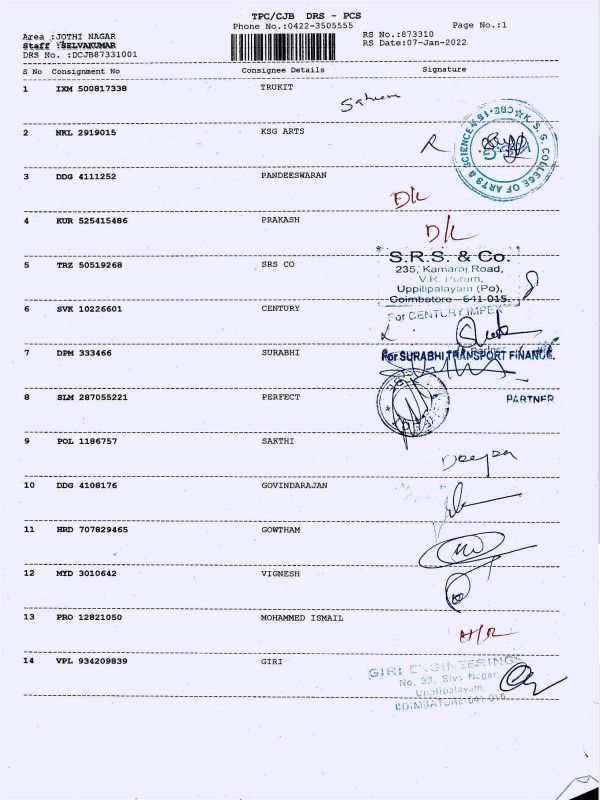 TPC/CJB DRS - PCS
Phone No.:0422-3505555
Page No.:1
Area :JOTHI NAGAR
RS No.:873310
Staff :SELVAKUMAR
RS Date:07-Jan-2022
DRS No. :DCJB87331001
S No Consignment No Consignee Details Signature
1 IXM 500817338 TRUKIT
2 NKL 2919015 KSG ARTS
K. S. G. COLLEGE OF ARTS & SCIENCE
3 DDG 4111252 PANDEESWARAN
D/L
4 KUR 525415486 PRAKASH
D/L
5 TRZ 50519268 SRS CO
S.R.S. & Co.
235, Kamaraj Road,
V.R. Puram,
Uppilipalayam (Po),
Coimbatore - 641-015.
6 SVK 10226601 CENTURY
For CENTURY IMPEX
Partner
7 DPM 333466 SURABHI
For SURABHI TRANSPORT FINANCE.
PARTNER
8 SLM 287055221 PERFECT
9 POL 1186757 SAKTHI
Deepa
10 DDG 4108176 GOVINDARAJAN
11 HRD 707829465 GOWTHAM
12 MYD 3010642 VIGNESH
13 PRO 12821050 MOHAMMED ISMAIL
14 VPL 934209839 GIRI
GIRI ENGINEERINGS
No. 33, Siva Nagar,
Uppilipalayam,
COIMBATORE-641 015